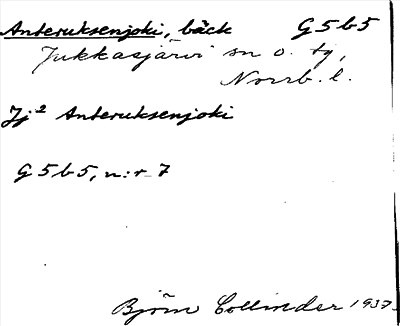 Anteruksenjoki, bäck G5b5
Jukkasjärvi sn o. tg,
Norrb. l.
Jj² Anteruksenjoki
G5b5, n:r 7
Björn Collinder 1937.